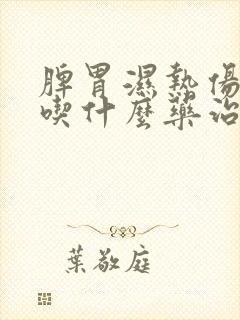 脾胃濕熱傷
喫什麼藥治
葉敬庭